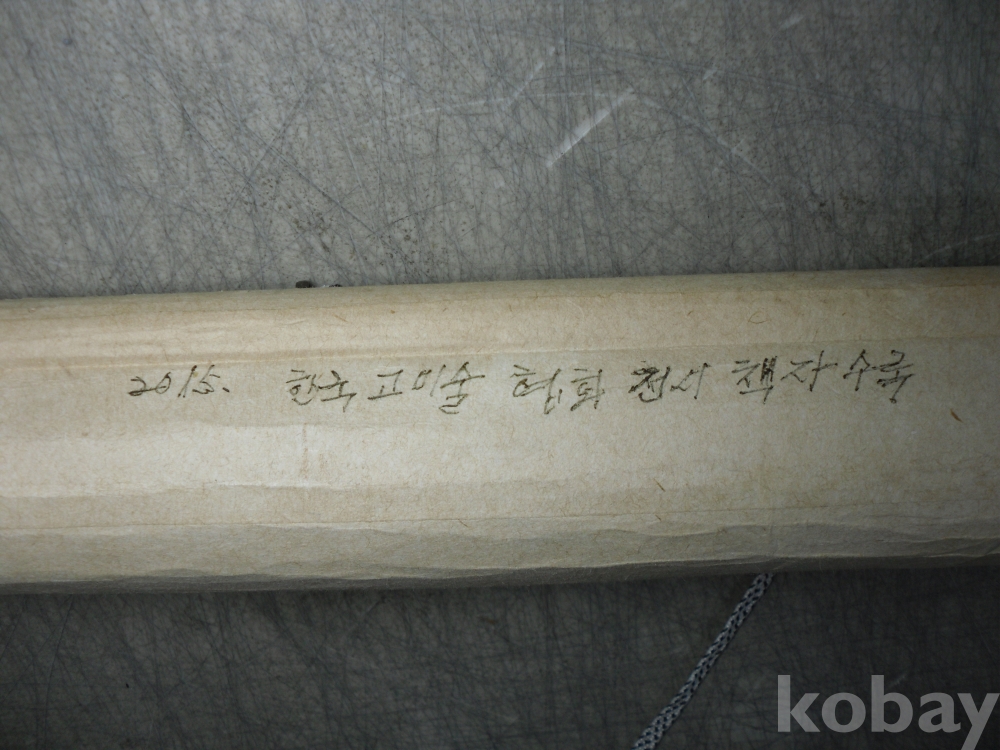 2015. 한국고미술 협회 전시 책자 수록
kobay